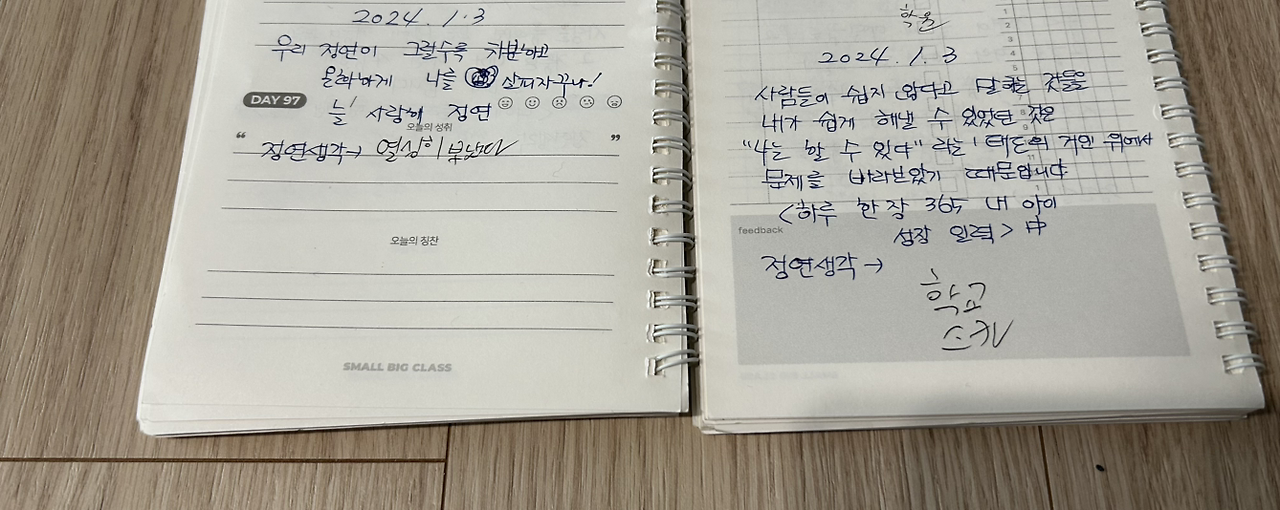 2024. 1. 3
우리 정연이 그럴수록 차분하고
온화하게 나를 살피자꾸나!
DAY 97
늘 사랑해 정연
오늘의 성취
“ 정연생각→ 열심히 ”
오늘의 칭찬
SMALL BIG CLASS
2024. 1. 3
사람들이 쉽지 않다고 말하는 것들을
내가 쉽게 해낼 수 있었던 것은
"나는 할 수 있다" 라는 태도의 거인 위에서
문제를 바라보았기 때문입니다
<하루 한 장 365 내 아이
feedback
성장 일력> 中
정연생각→
학교